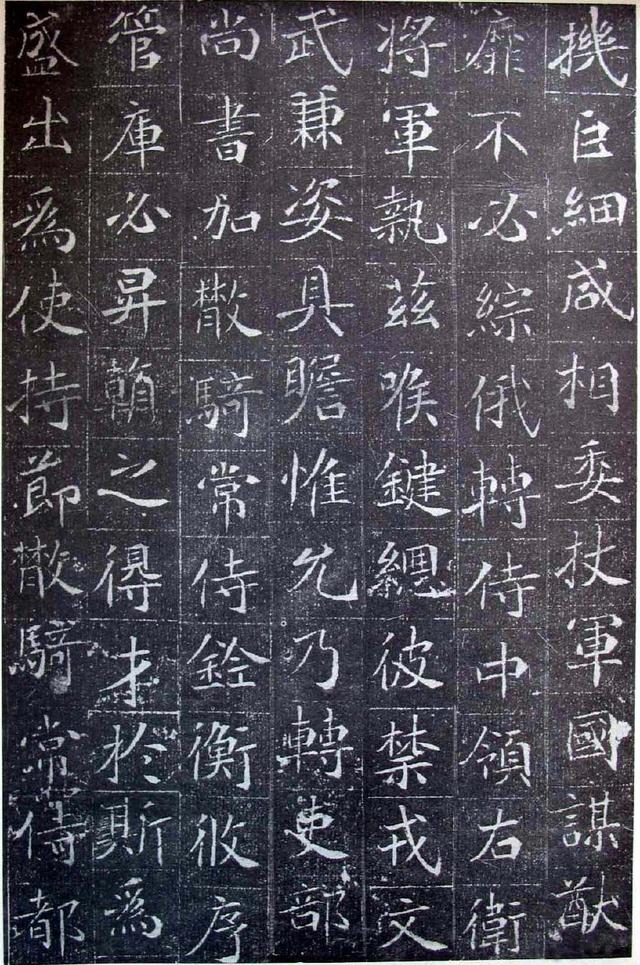 機巨細咸相委杖軍國謀猷
靡不必綜俄轉侍中領右衛
將軍執茲喉鍵綢彼禁戎文
武兼姿具瞻惟允乃轉吏部
尚書加散騎常侍銓衡攸序
管庫必昇顧之得才於斯為
盛出為使持節散騎常侍都